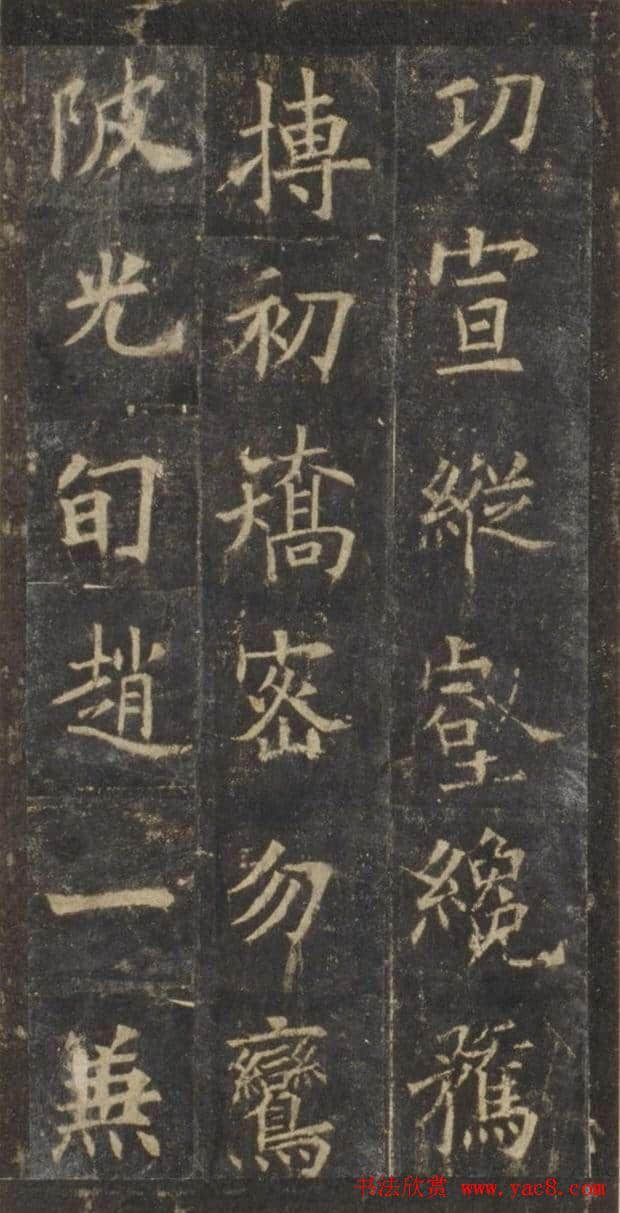 功宣縱壑纔
搏初矯密勿鸞
陂光旬趙一兼
书法欣赏 www.yac8.com